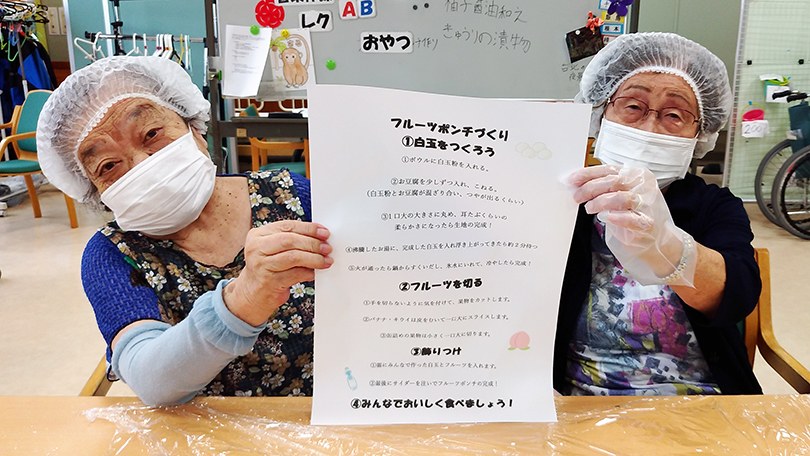 レク
AB
柚子醤油和え
おやつ
手作り
きゅうりの漬物
フルーツポンチづくり
①白玉をつくろう
①ボウルに白玉粉を入れる。
②お豆腐を少しずつ入れ、こねる。
(白玉粉とお豆腐が混ざり合い、つやが出るくらい)
③一口大の大きさに丸め、耳たぶくらいの
柔らかさになったら生地の完成!
④沸騰したお湯に、完成した白玉を入れ浮き上がってきたら約2分待つ
⑤火が通ったら鍋からすくいだし、氷水にいれて、冷やしたら完成!
②フルーツを切る
①手を切らないように気を付けて、果物をカットします。
②バナナ・キウイは皮をむいて一口大にスライスします。
③缶詰めの果物は小さく一口大に切ります。
③飾りつけ
①器にみんなで作った白玉とフルーツを入れます。
②最後にサイダーを注いでフルーツポンチの完成!
④みんなでおいしく食べましょう!